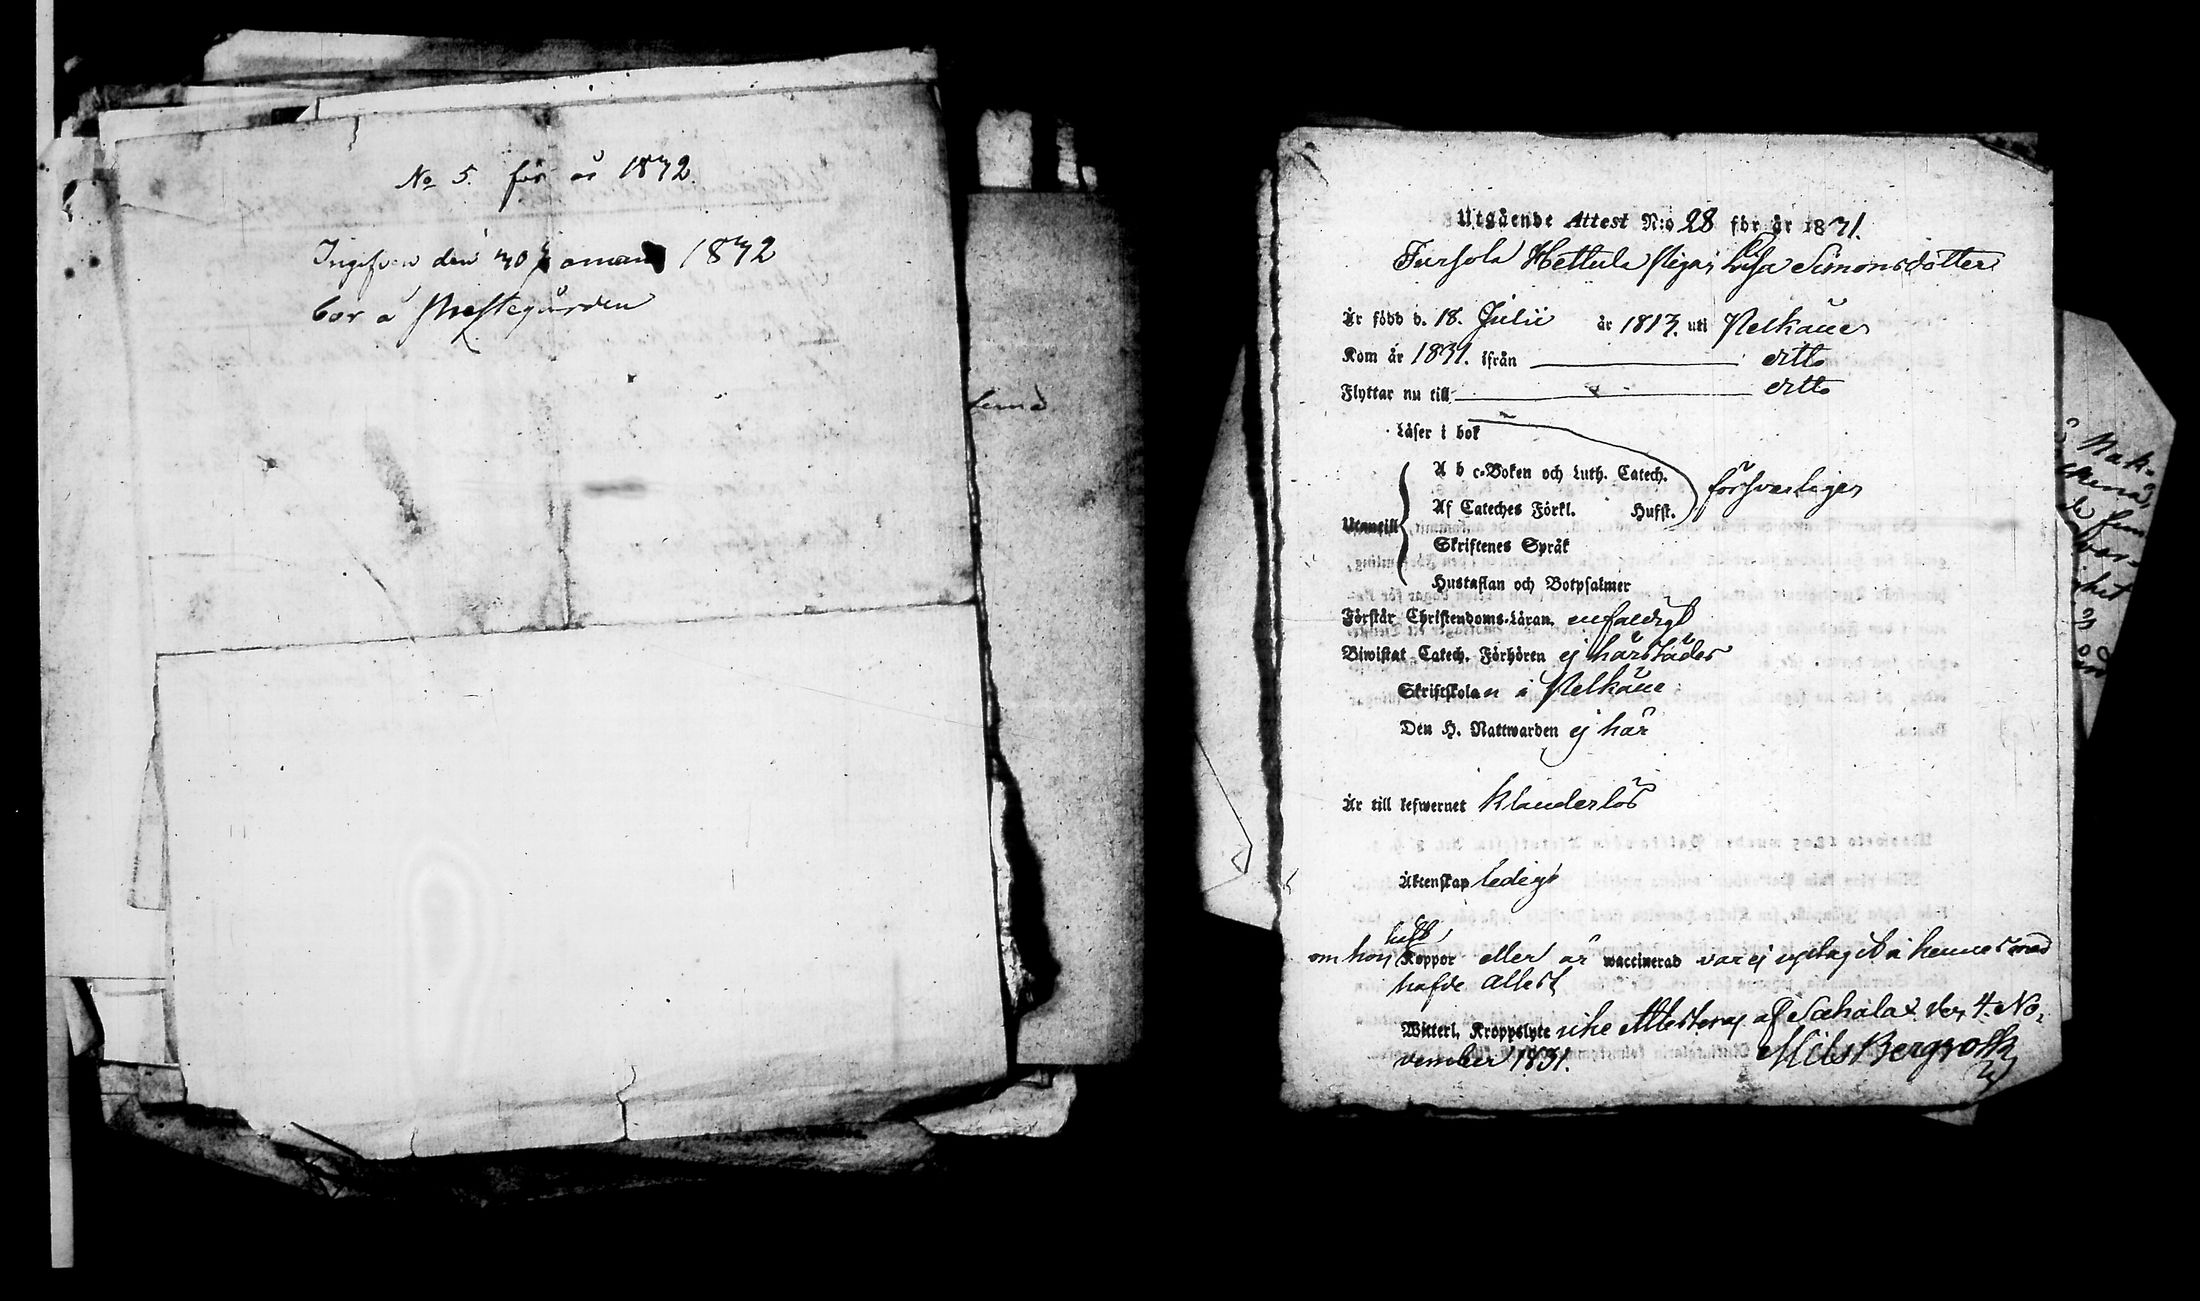 No 5. för år 1832.
Ingifven den 30 Januari 1832
bor å Prestegården
Utgående Attest N:o 28 för år 1831.
Tursola Hettula Pigan Lisa Simonsdotter
Är född d. 18. Julii år 1813. uti Pelkäne
Kom år 1831. ifrån ditto
Flyttar nu till ditto
Läser i bok
A b c-Boken och Luth. Catech.
försvarligen
Utantill
Af Cateches Förkl. Husft.
Skriftenes Språk
Hustaflan och Botpsalmer
Förstår Christendoms-Läran. enfaldigt
Biwistat Catech. Förhören ej härstädes
Skriftskolan i Pelkäne
Den H. Nattwarden ej här
Är till lefwernet klanderlös
Äktenskap ledig
haft
om hon Koppor eller är waccinerad var ej updaget å hennes med
hafde attest
Witterl. Kroppslyte icke Attesteras af Sahalax den 4. No-
vember 1831. Nils Bergroth